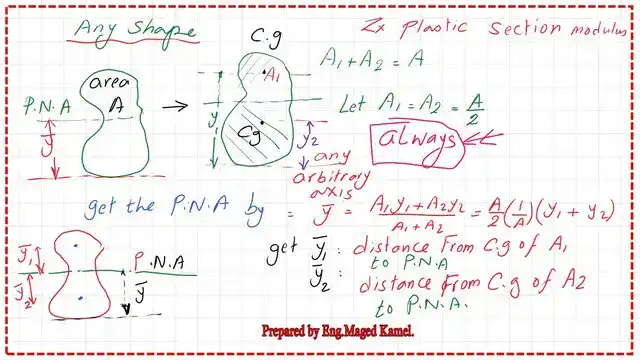 Any Shape
C.g
Zx Plastic section modulus
A1 + A2 = A
area
A
P.N.A
ȳ
A1
y1
Cg
y2
Let A1 = A2 = A/2
always
any
arbitrary
axis
get the P.N.A by = ȳ = A1y1+A2y2/A1+A2 = A/2 (1/A) (y1 + y2)
ȳ1
ȳ2
P.N.A
ȳ
get ȳ1 : distance From C.g of A1
to P.N.A
ȳ2 : distance From C.g of A2
to P.N.A.
Prepared by Eng.Maged Kamel.